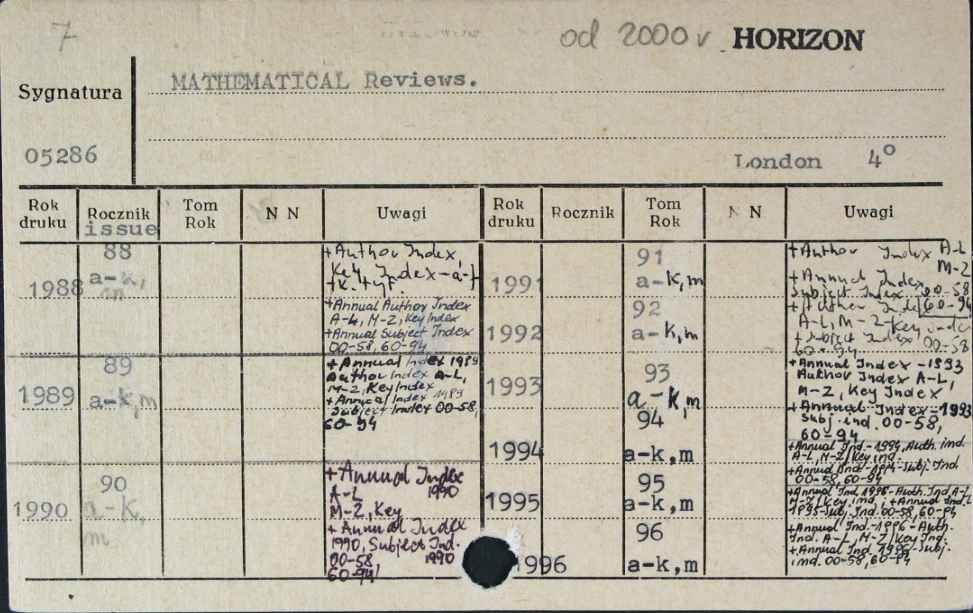 7
od 2000 r. HORIZON
Sygnatura
MATHEMATICAL Reviews.
05286
London 4°
Rok druku
Rocznik
issue
Tom Rok
N N
Uwagi
Rok druku
Rocznik
Tom Rok
N N
Uwagi
1988
88
a-k,
m
+Author Index,
Key Index-a-f
+k.
+Annual Author Index
A-L, M-Z, Key Index
+Annual Subject Index
00-58, 60-94
1989
89
a-k,m
+Annual Index 1989
Author Index A-L,
M-Z, Key Index
+Annual Index 1989
Subject Index 00-58,
60-94
1990
90
a-k,
m
+Annual Index
A-L 1990
M-Z, Key
+Annual Index
1990, Subject Ind.
00-58 1990
60-94!
1991
91
a-k,m
+Author Index A-L
M-Z
+Annual Index
Subject Index 00-58
60-94
1992
92
a-k,m
+Author Index
A-L, M-Z Key indez
+Subject Index 00-58
60-94
1993
93
a-k,m
+Annual Index -1993
Author Index A-L,
M-Z, Key Index
+Annual Index-1993
Subj. ind. 00-58,
60-94
1994
94
a-k,m
+Annual Ind.-1994, Auth. ind.
A-L, M-Z/Key ind.
+Annual Ind.-1994-Subj. Ind
00-58, 60-94
1995
95
a-k,m
+Annual Ind 1995-Auth. Ind A-L
M-Z/Key ind. ; +Annual Ind.
1995-Subj. Ind. 00-58, 60-94
1996
96
a-k,m
+Annual Ind.-1996-Auth.
Ind. A-L, M-Z/Key Ind.
+Annual Ind 1996-Subj.
ind. 00-58, 60-94